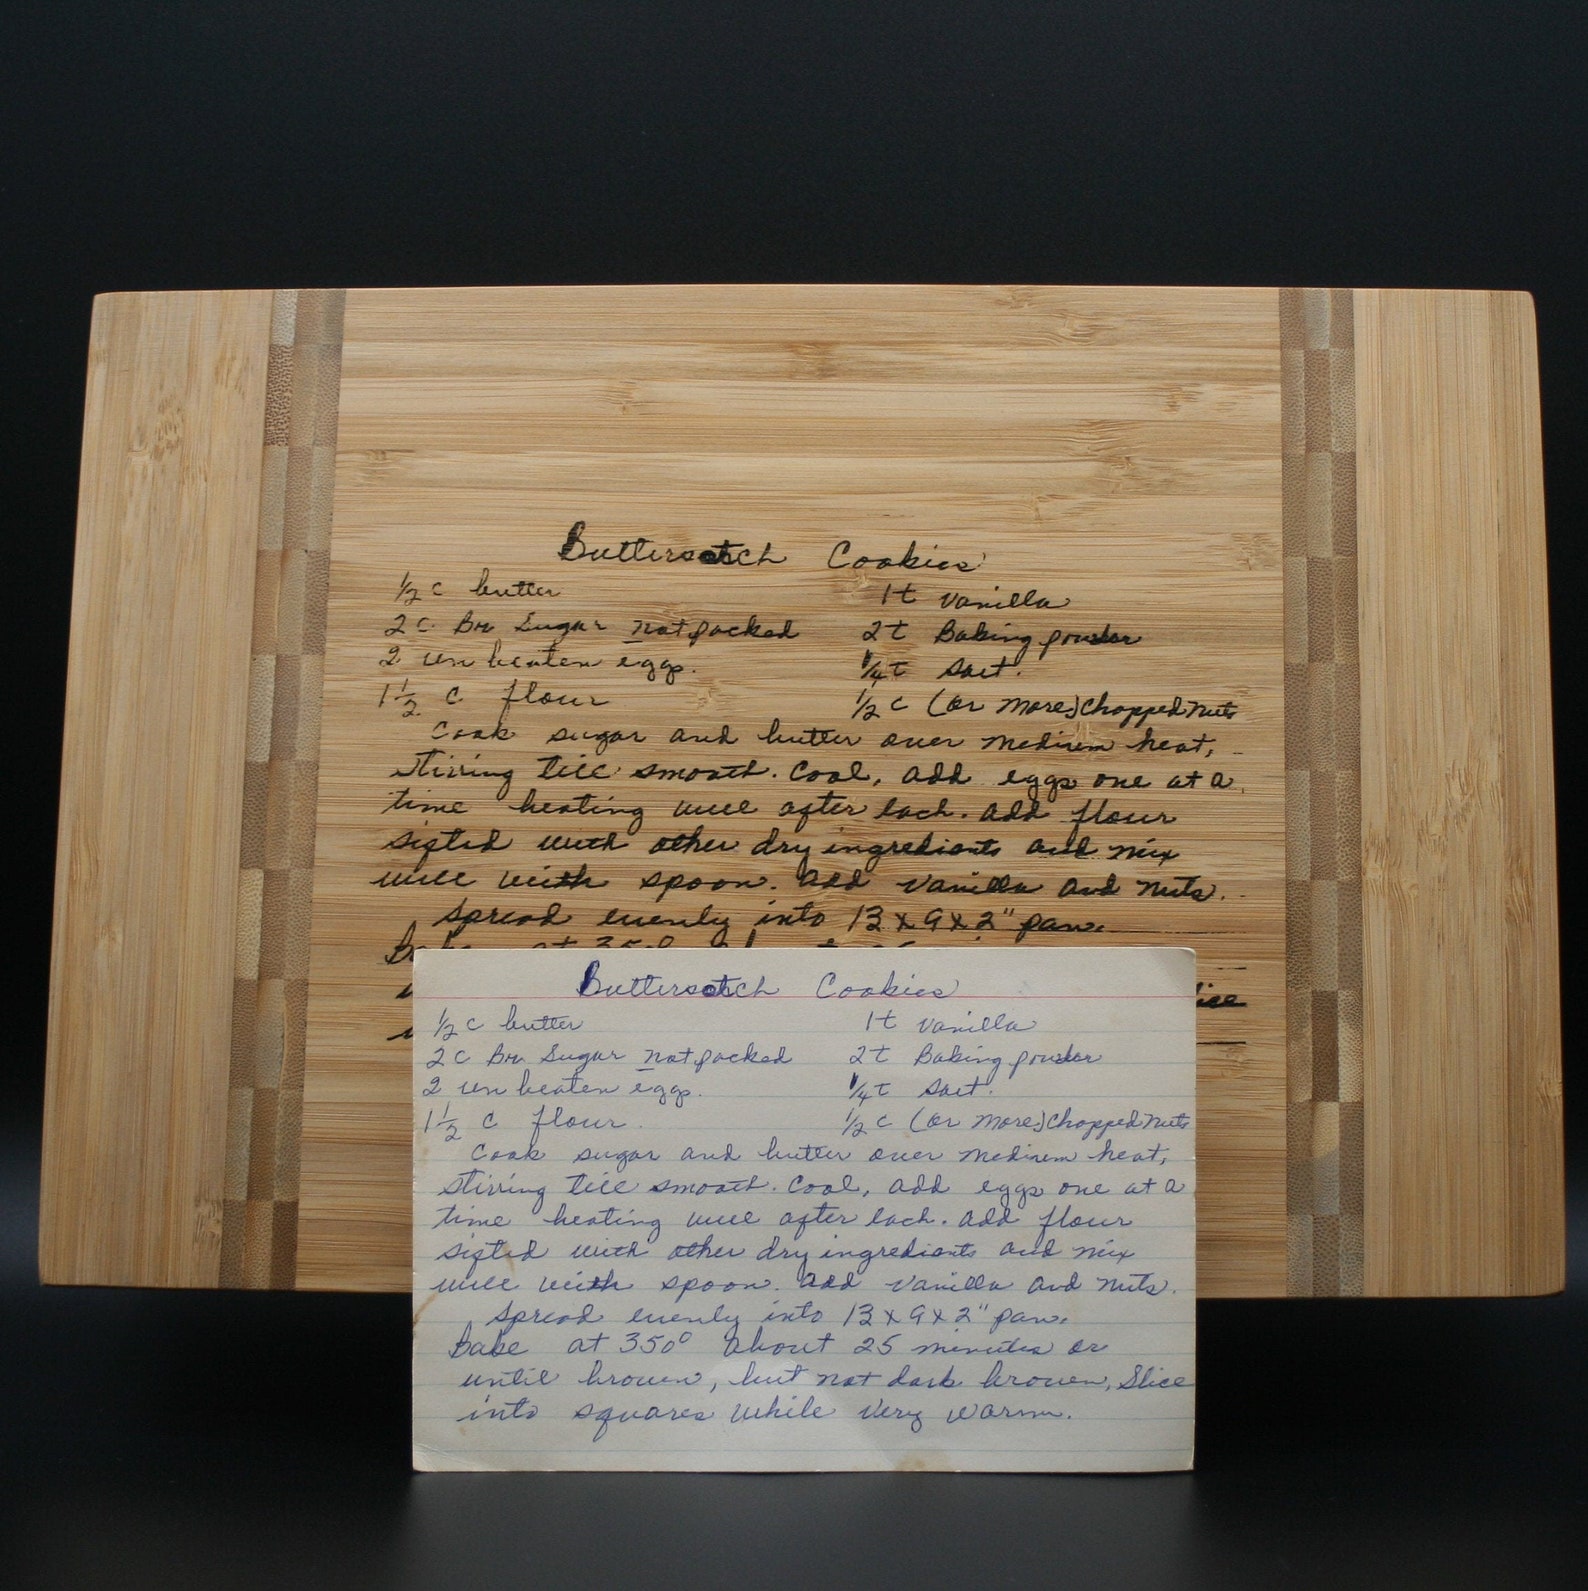 Butterscotch Cookies
1/2 c butter 1t vanilla
2 c Br Sugar not packed 2t Baking powder
2 un beaten eggs. 1/4 t Salt.
1 1/2 c flour 1/2 c (or more) Chopped Nuts
Cook sugar and butter over medium heat,
stirring till smooth. Cool, add eggs one at a
time beating well after each. Add flour
sifted with other dry ingredients and mix
well with spoon. Add vanilla and nuts.
Spread evenly into 13 x 9 x 2" pan.
Butterscotch Cookies
1/2 c butter 1t vanilla
2 c Br Sugar not packed 2t Baking powder
2 un beaten eggs. 1/4 t Salt.
1 1/2 c flour 1/2 c (or more) Chopped Nuts
Cook sugar and butter over medium heat,
stirring till smooth. Cool, add eggs one at a
time beating well after each. Add flour
sifted with other dry ingredients and mix
well with spoon. Add vanilla and nuts.
Spread evenly into 13 x 9 x 2" pan.
Bake at 350° about 25 minutes or
until brown, but not dark brown, Slice
into squares while very warm.